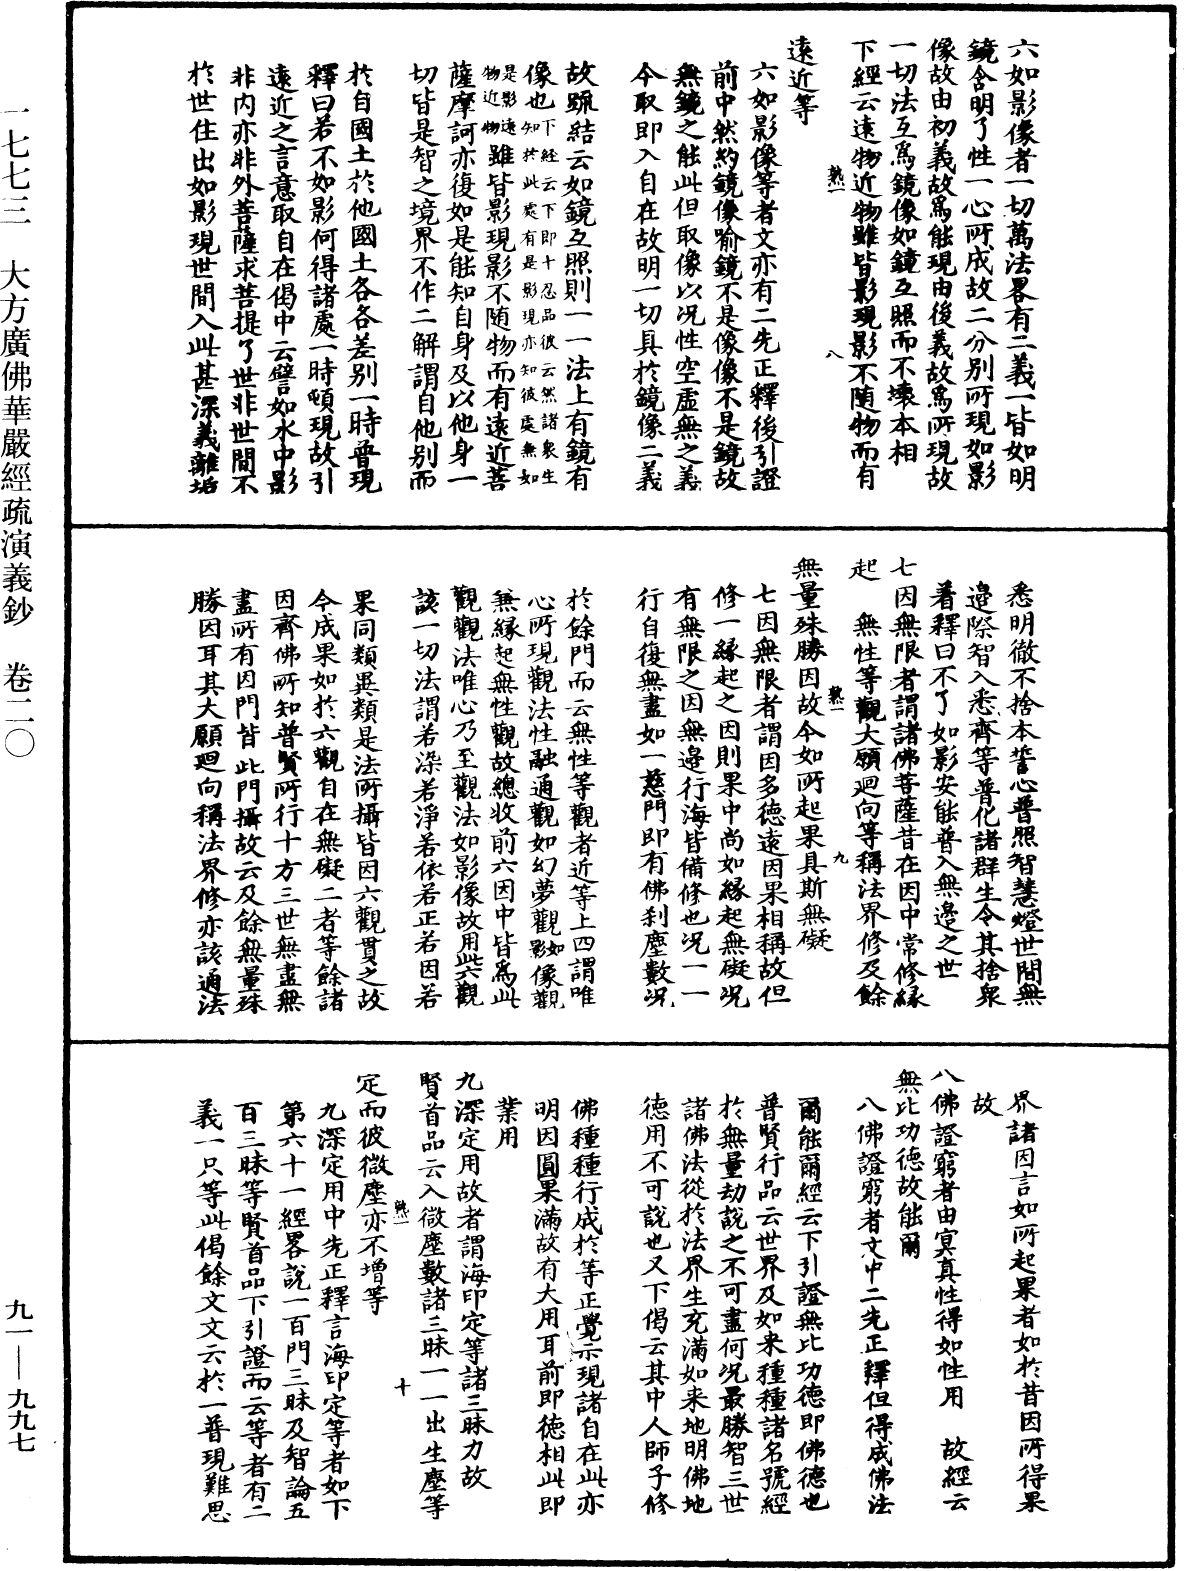 六如影像者一切萬法畧有二義一皆如明
鏡含明了性一心所成故二分別所現如影
像故由初義故爲能現由後義故爲所現故
一切法互爲鏡像如鏡互照而不壞本相
下經云遠物近物雖皆影現影不隨物而有
熟一
八
遠近等
六如影像等者文亦有二先正釋後引證
前中然約鏡像喻鏡不是像像不是鏡故
無鏡之能此但取像以况性空虛無之義
今取即入自在故明一切具於鏡像二義
故䟽結云如鏡互照則一一法上有鏡有
像也下經云下即十忍品彼云然諸衆生知於此處有是影現亦知彼處無如
是影遠物近物雖皆影現影不隨物而有遠近菩
薩摩訶亦復如是能知自身及以他身一
切皆是智之境界不作二解謂自他別而
於自國土於他國土各各差別一時普現
釋曰若不如影何得諸處一時頓現故引
遠近之言意取自在偈中云譬如水中影
非内亦非外菩薩求菩提了世非世間不
於世住出如影現世間入此甚深義離垢
悉明徹不捨本誓心普照智慧燈世間無
邊際智入悉齊等普化諸群生令其捨衆
着釋曰不了如影安能普入無邊之世
七因無限者謂諸佛菩薩昔在因中常修緣
起 無性等觀大願廻向等稱法界修及餘
熟一
九
無量殊勝因故今如所起果具斯無礙
七因無限者謂因多德遠因果相稱故但
修一緣起之因則果中尚如緣起無礙况
有無限之因無邊行海皆備修也况一一
行自復無盡如一慈門即有佛刹塵數况
於餘門而云無性等觀者近等上四謂唯
心所現觀法性融通觀如幻夢觀如影像觀
無緣起無性觀故總收前六因中皆爲此
觀觀法唯心乃至觀法如影像故用此六觀
該一切法謂若染若淨若依若正若因若
果同類異類是法所攝皆因六觀貫之故
今成果如於六觀自在無礙二者等餘諸
因齊佛所知普賢所行十方三世無盡無
盡所有因門皆此門攝故云及餘無量殊
勝因耳其大願廻向稱法界修亦該通法
界諸因言如所起果者如於昔因所得果
故
八佛證窮者由㝠真性得如性用 故經云
無比功德故能爾
八佛證窮者文中二先正釋但得成佛法
爾能爾經云下引證無比功德即佛德也
普賢行品云世界及如來種種諸名號經
於無量劫說之不可盡何况最勝智三世
諸佛法從於法界生充滿如來地明佛地
德用不可說也又下偈云其中人師子修
佛種種行成於等正覺示現諸自在此亦
明因圓果滿故有大用耳前即德相此即
業用
九深定用故者謂海印定等諸三昧力故
賢首品云入微塵數諸三昧一一出生塵等
定而彼微塵亦不增等
熟一
十
九深定用中先正釋言海印定等者如下
第六十一經畧說一百門三昧及智論五
百三昧等賢首品下引證而云等者有二
義一只等此偈餘文文云於一普現難思
一七七三 大方廣佛華嚴經疏演義鈔 卷二〇
九一—九九七